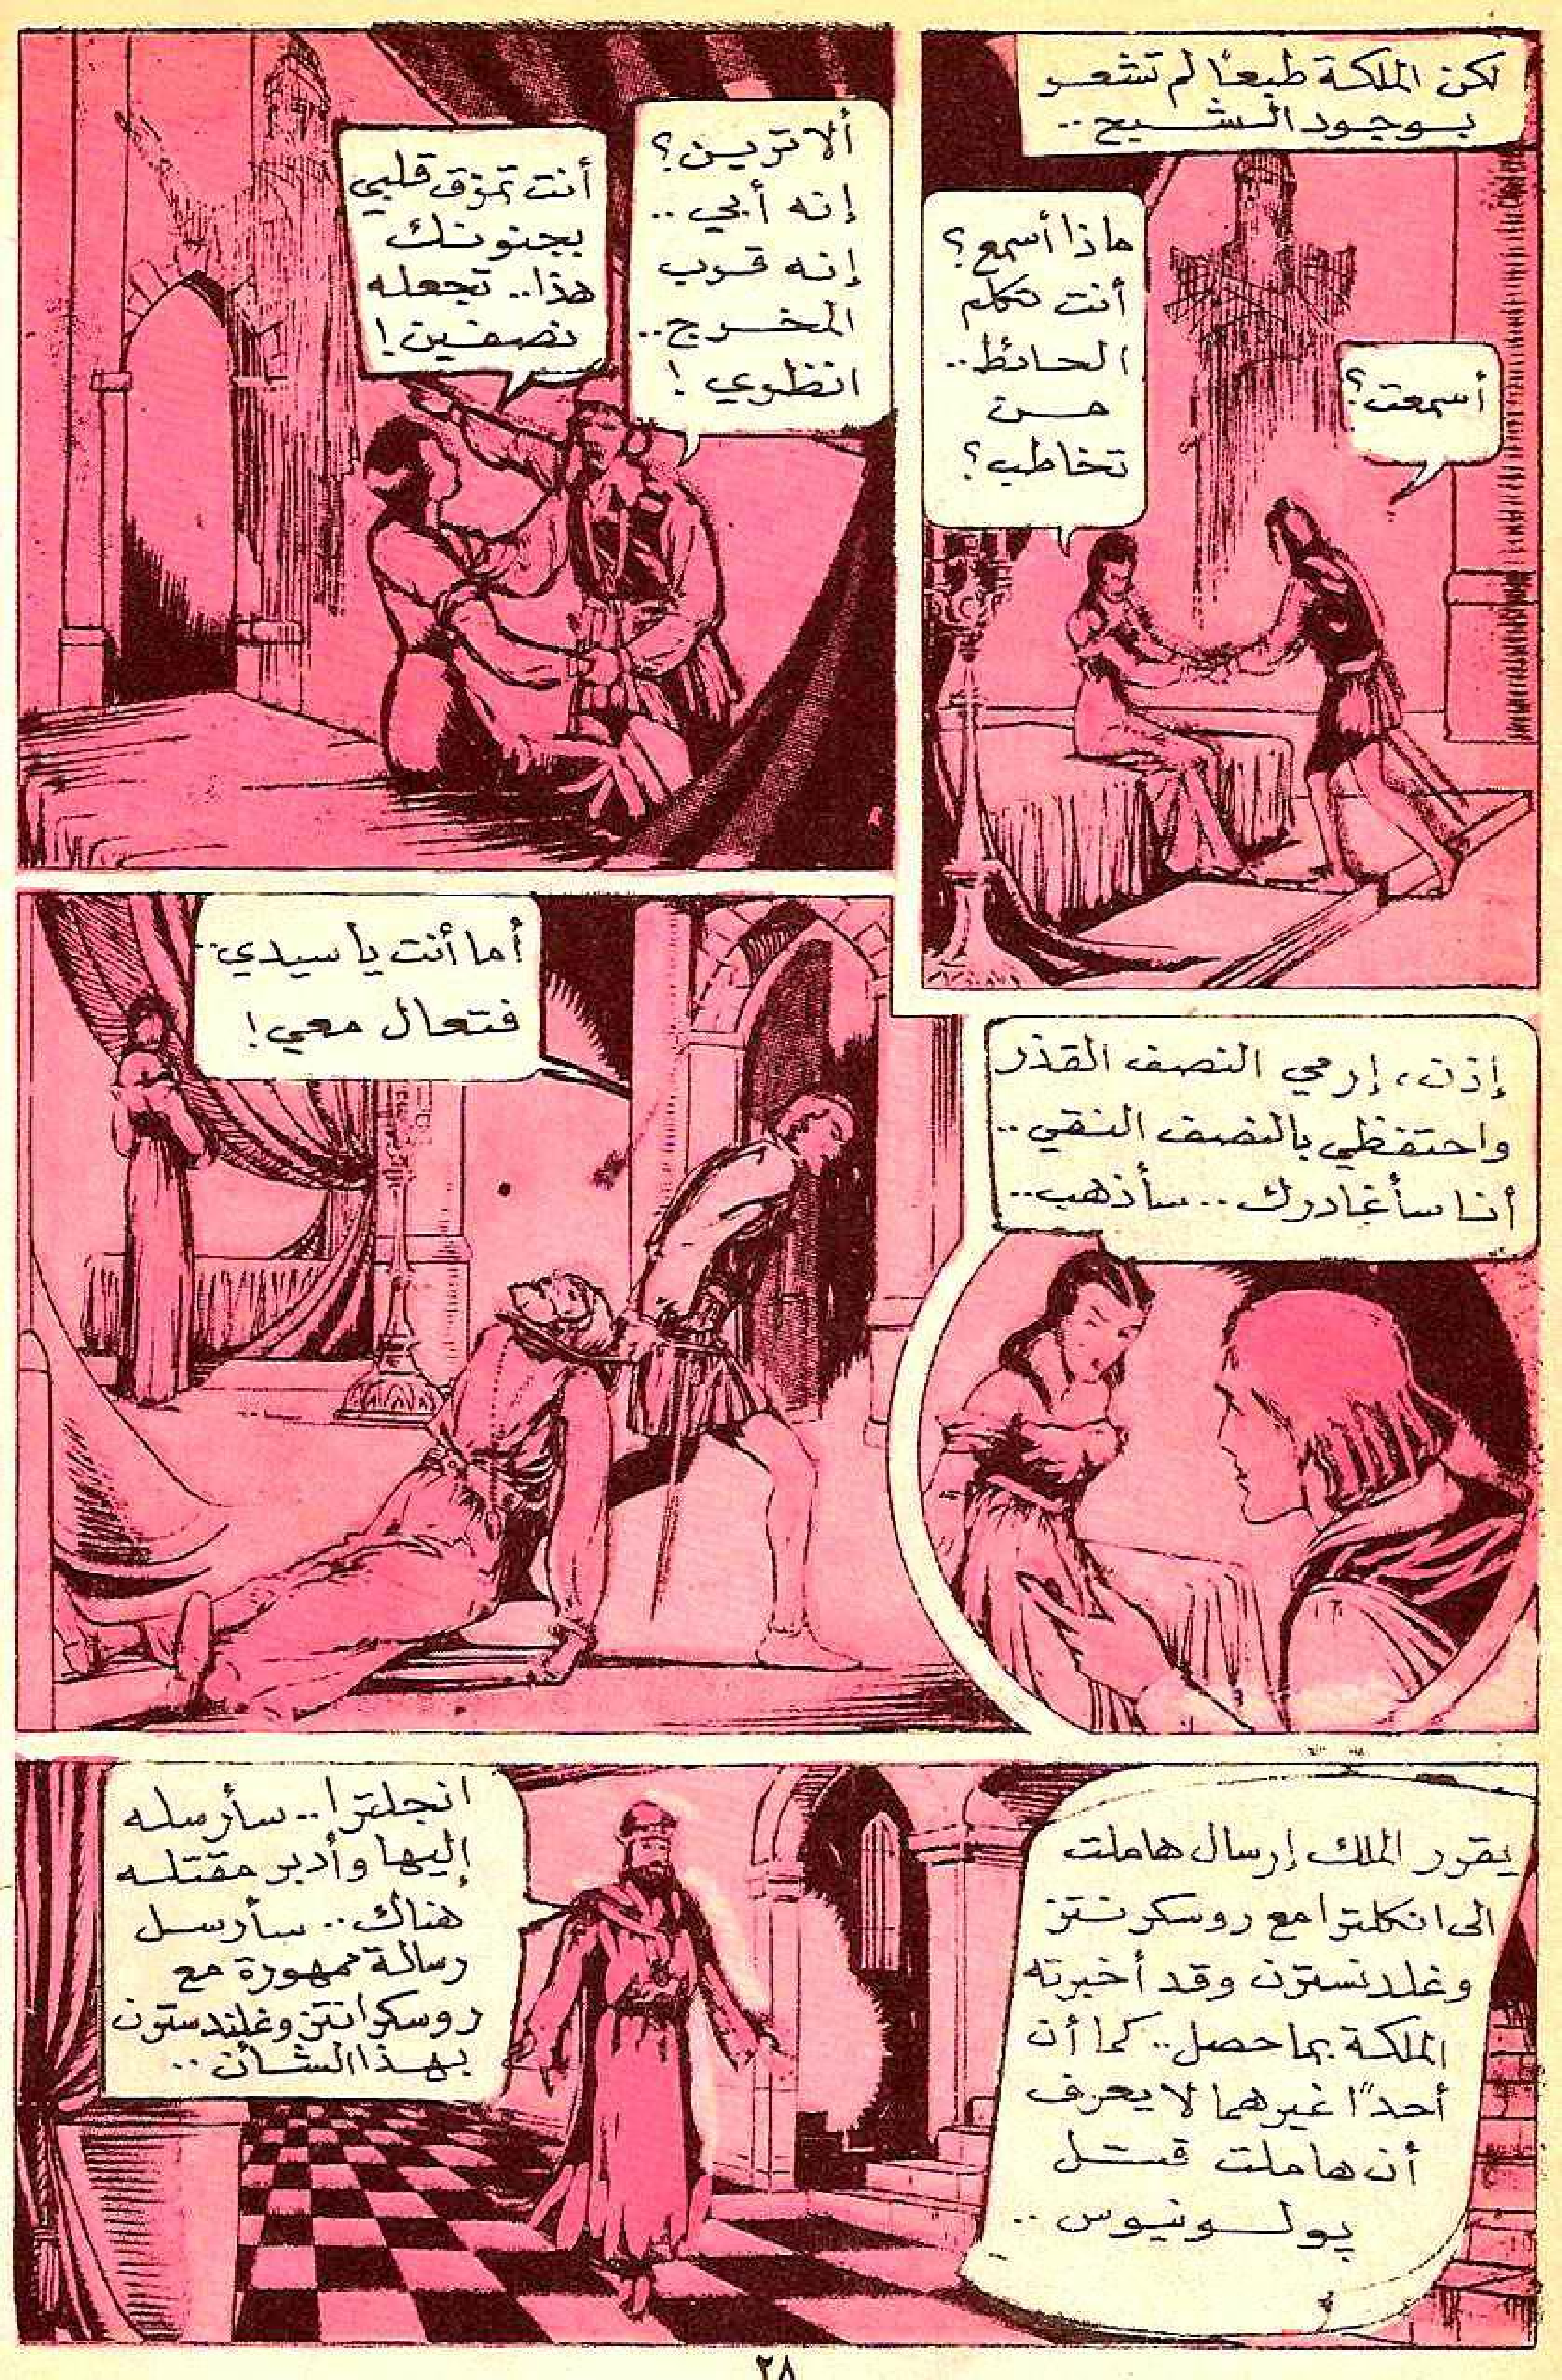 لكن الملكة طبعًا لم تشعر
بوجود الشبح..
أسمعت؟
ماذا أسمع؟
أنت تكلم
الحائط..
من
تخاطب؟
ألا ترين؟
إنه أبي..
إنه قرب
المخرج..
انظري!
أنت تمزق قلبي
بجنونك
هذا.. تجعله
نصفين!
إذن، إرمي النصف القذر
واحتفظي بالنصف النقي..
أنا سأغادرك.. سأذهب..
أما أنت يا سيدي..
فتعال معي!
يقرر الملك إرسال هاملت
الى انكلترا مع روسكرنتز
وغلدنسترن وقد أخبرته
الملكة بما حصل.. كما أن
أحدًا غيرهما لا يعرف
أن هاملت قتل
بولونيوس..
انجلترا.. سأرسله
إليها وأدبر مقتله
هناك.. سأرسل
رسالة ممهورة مع
روسكرانتز وغلندسترن
بهذا الشأن..
٢٨